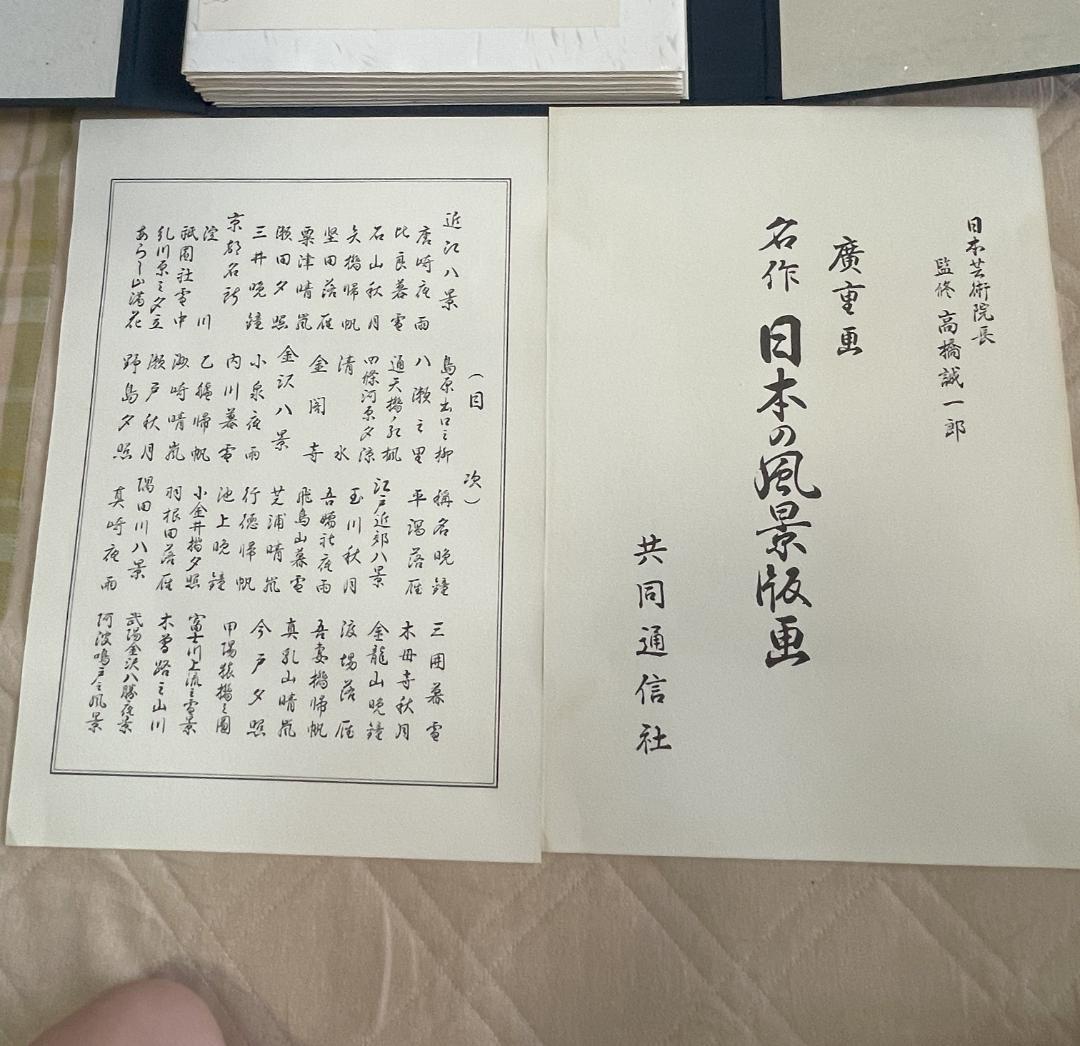 日本芸術院長
監修 高橋誠一郎
廣重画
名作 日本の風景版画
共同通信社
(目次)
近江八景
唐崎夜雨
比良暮雪
石山秋月
矢橋帰帆
堅田落雁
粟津晴嵐
瀬田夕照
三井晩鐘
京都名所
淀川
祇園社雪中
糺川原之夕立
あらし山満花
島原出口之柳
八瀬之里
通天橋ノ紅楓
四條河原夕涼
清水
金閣寺
金沢八景
小泉夜雨
内川暮雪
乙艫帰帆
洲崎晴嵐
瀬戸秋月
野島夕照
稱名晩鐘
平潟落雁
江戸近郊八景
玉川秋月
吾嬬社夜雨
飛鳥山暮雪
芝浦晴嵐
行徳帰帆
池上晩鐘
小金井橋夕照
羽根田落雁
隅田川八景
真崎夜雨
三囲暮雪
木母寺秋月
金龍山晩鐘
渡場落雁
吾妻橋帰帆
真乳山晴嵐
今戸夕照
甲陽猿橋之圖
富士川上流之雪景
木曽路之山川
武陽金沢八勝夜景
阿波鳴戸之風景